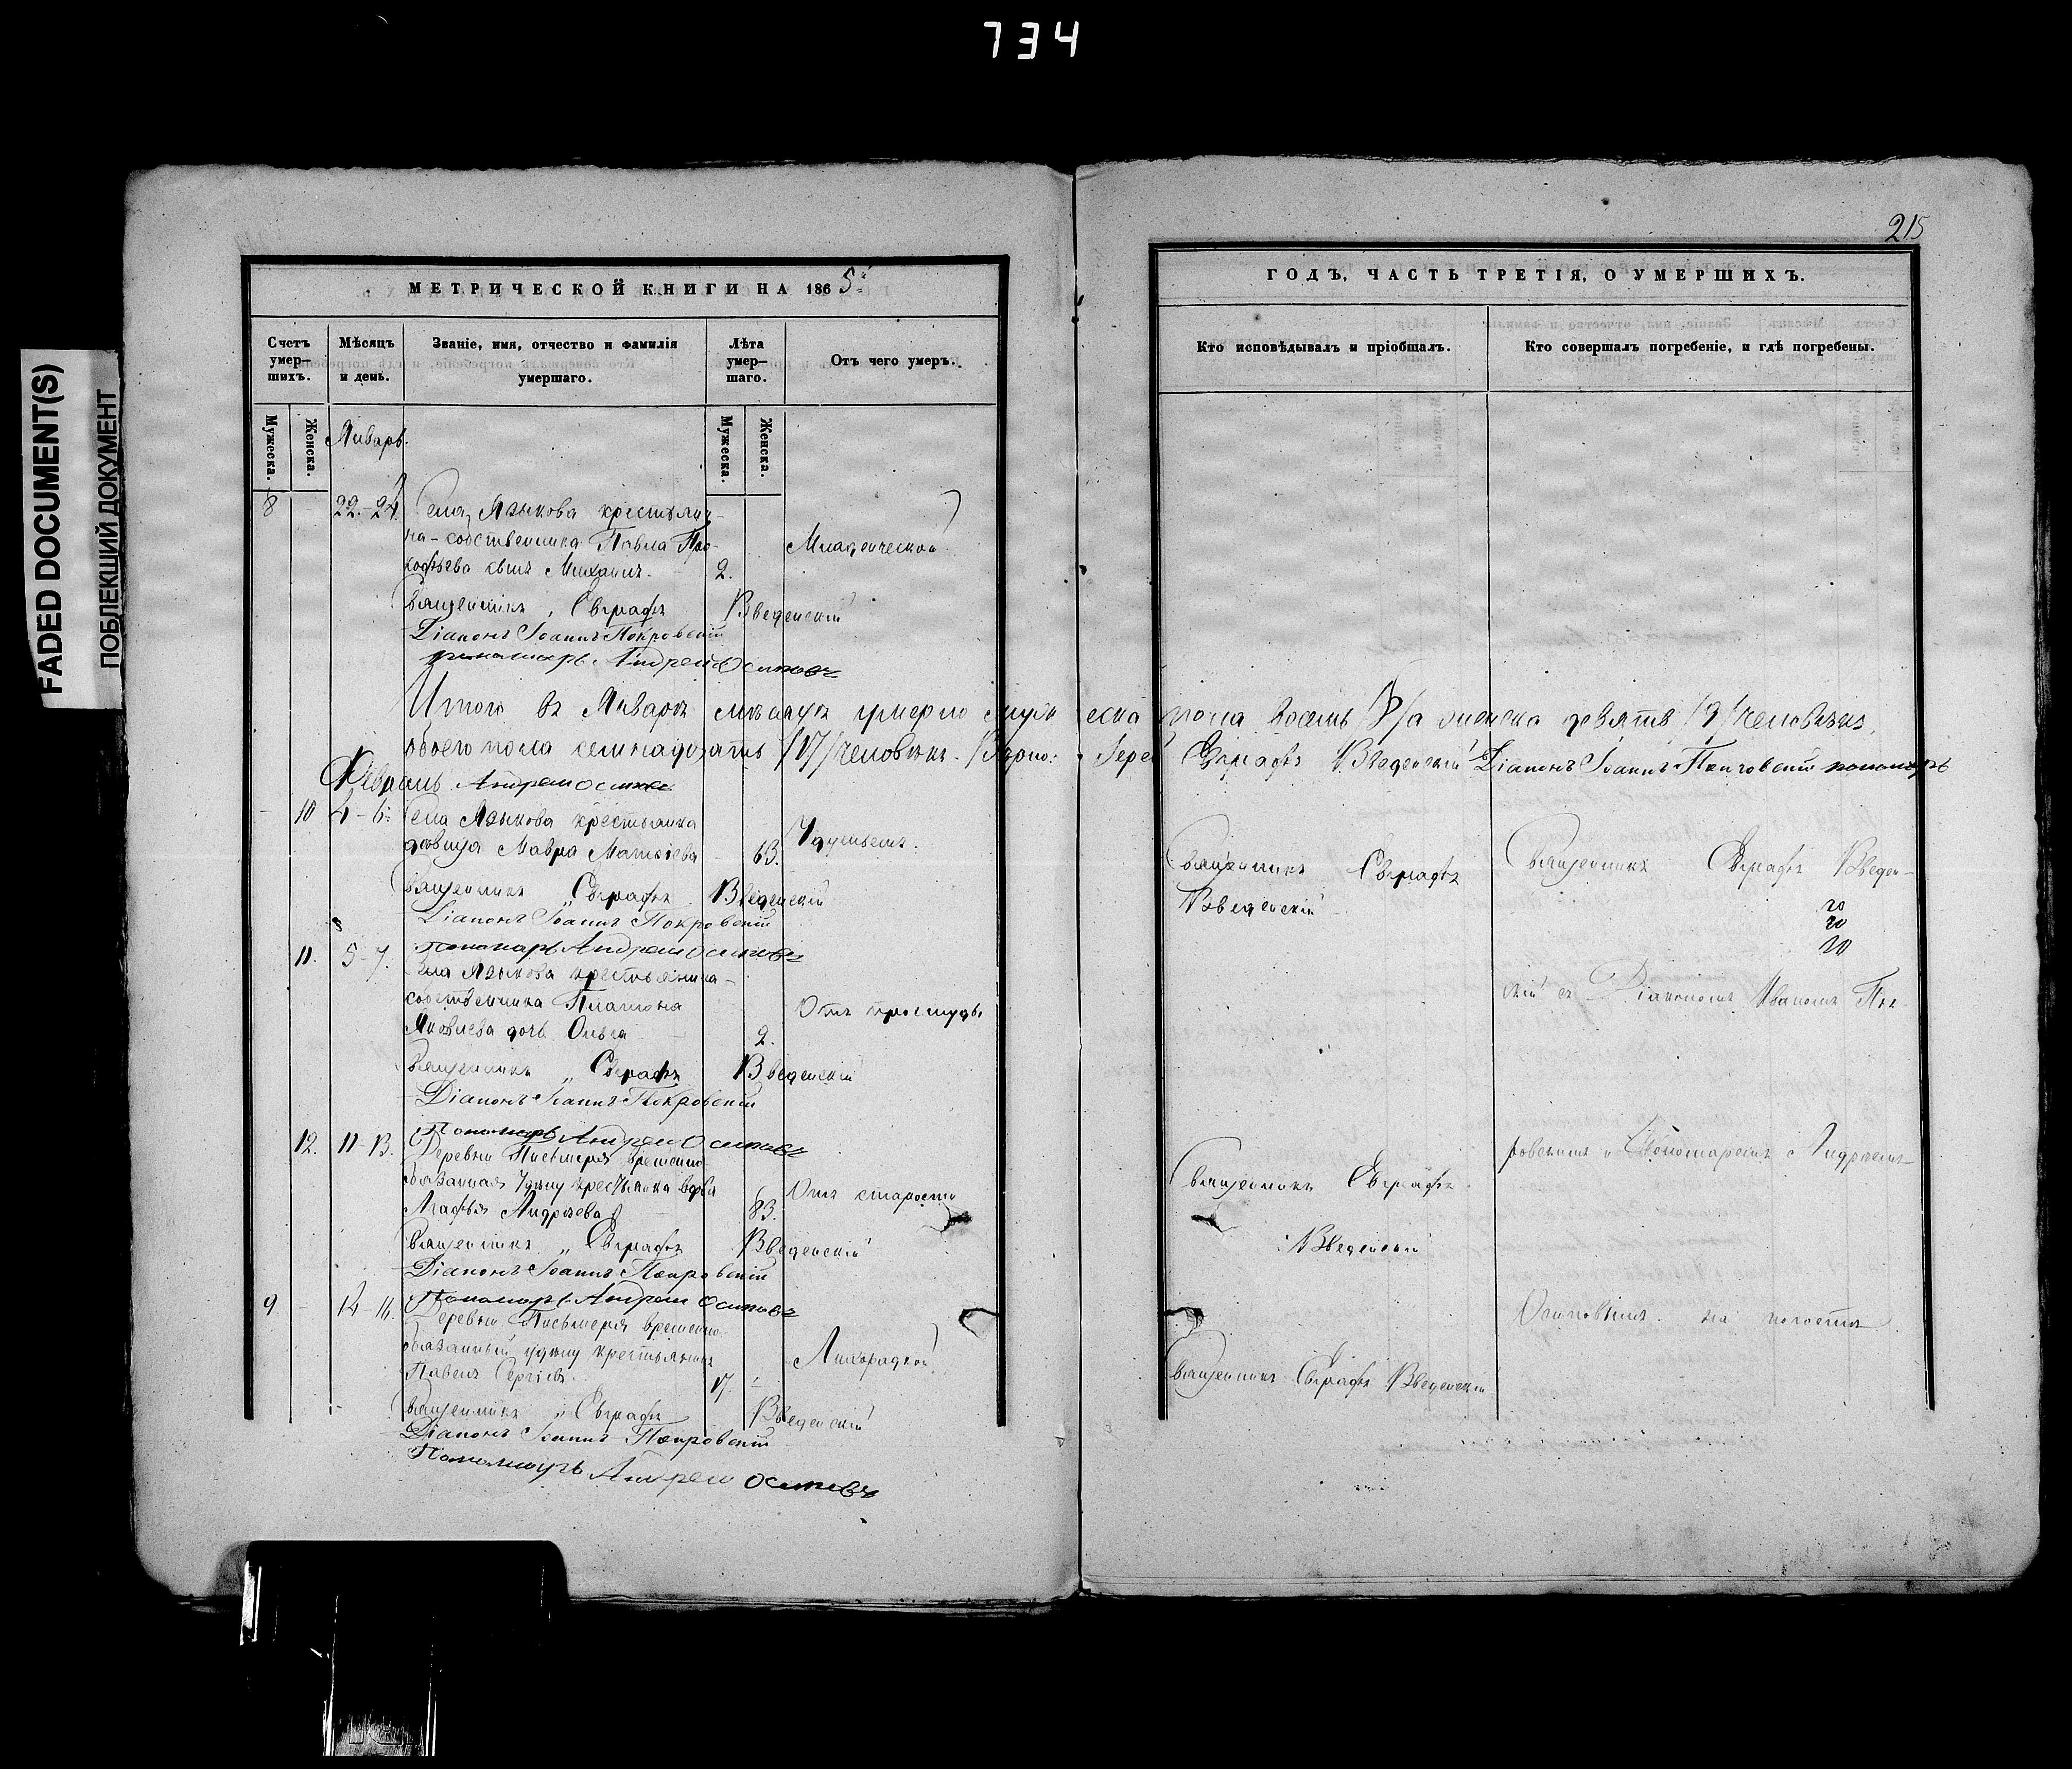 734
FADED DOCUMENT(S)
ПОБЛЕКШИЙ ДОКУМЕНТ
МЕТРИЧЕСКОЙ КНИГИ НА 1865
Счетъ умер-шихъ.
Мѣсяцъ и день.
Званіе, имя, отчество и фамилія умершаго.
Лѣта умер-шаго.
Отъ чего умеръ.
Мужеска.
Женска.
Январь.
Мужеска.
Женска.
8 22.-24. Села Языкова крестьяни-
на-собственника Павла Про-
кофьева сынъ Михаилъ. 2. Младенческой
Священникъ Евграфъ Введенскій
Діаконъ Іоаннъ Покровскій
пономарь Андрей Осиповъ
Итого въ Январѣ мѣсяцѣ умерло мужеска пола восемь /8/ а женска девять /9/ человѣкъ,
обоего пола семнадцать /17/ человѣкъ. Вѣрно: Іерей Евграфъ Введенскій Діаконъ Іоаннъ Покровскій пономарь
Февраль Андрей Осиповъ
10 4-6. Села Языкова крестьянка
вдовица Мавра Матвѣева 63. Удушьемъ.
Священникъ Евграфъ Введенскій
Діаконъ Іоаннъ Покровскій
Пономарь Андрей Осиповъ
11. 5-7. Села Языкова крестьянина-
собственника Платона
Яковлева дочь Ольга 2. Отъ простуды
Священникъ Евграфъ Введенскій
Діаконъ Іоаннъ Покровскій
Пономарь Андрей Осиповъ
12. 11-13. Деревни Письмеря временно-
обязанная удѣлу крестьянка вдова
Марфа Андреева 83. Отъ старости
Священникъ Евграфъ Введенскій
Діаконъ Іоаннъ Покровскій
Пономарь Андрей Осиповъ
9 14-16. Деревни Письмеря временно-
обязанный удѣлу крестьянинъ
Павелъ Сергіевъ. 17 Лихорадкой
Священникъ Евграфъ Введенскій
Діаконъ Іоаннъ Покровскій
Пономарь Андрей Осиповъ
215
ГОДЪ, ЧАСТЬ ТРЕТІЯ, О УМЕРШИХЪ.
Кто исповѣдывалъ и пріобщалъ.
Кто совершалъ погребеніе, и гдѣ погребены.
Священникъ Евграфъ
Введенскій
Священникъ Евграфъ
Введенскій
Священникъ Евграфъ Введенскій
Священникъ Евграфъ Введен-
скій съ Діакономъ Иваномъ Пок-
ровскимъ и Пономаремъ Андреемъ
Осиповымъ на погостѣ.